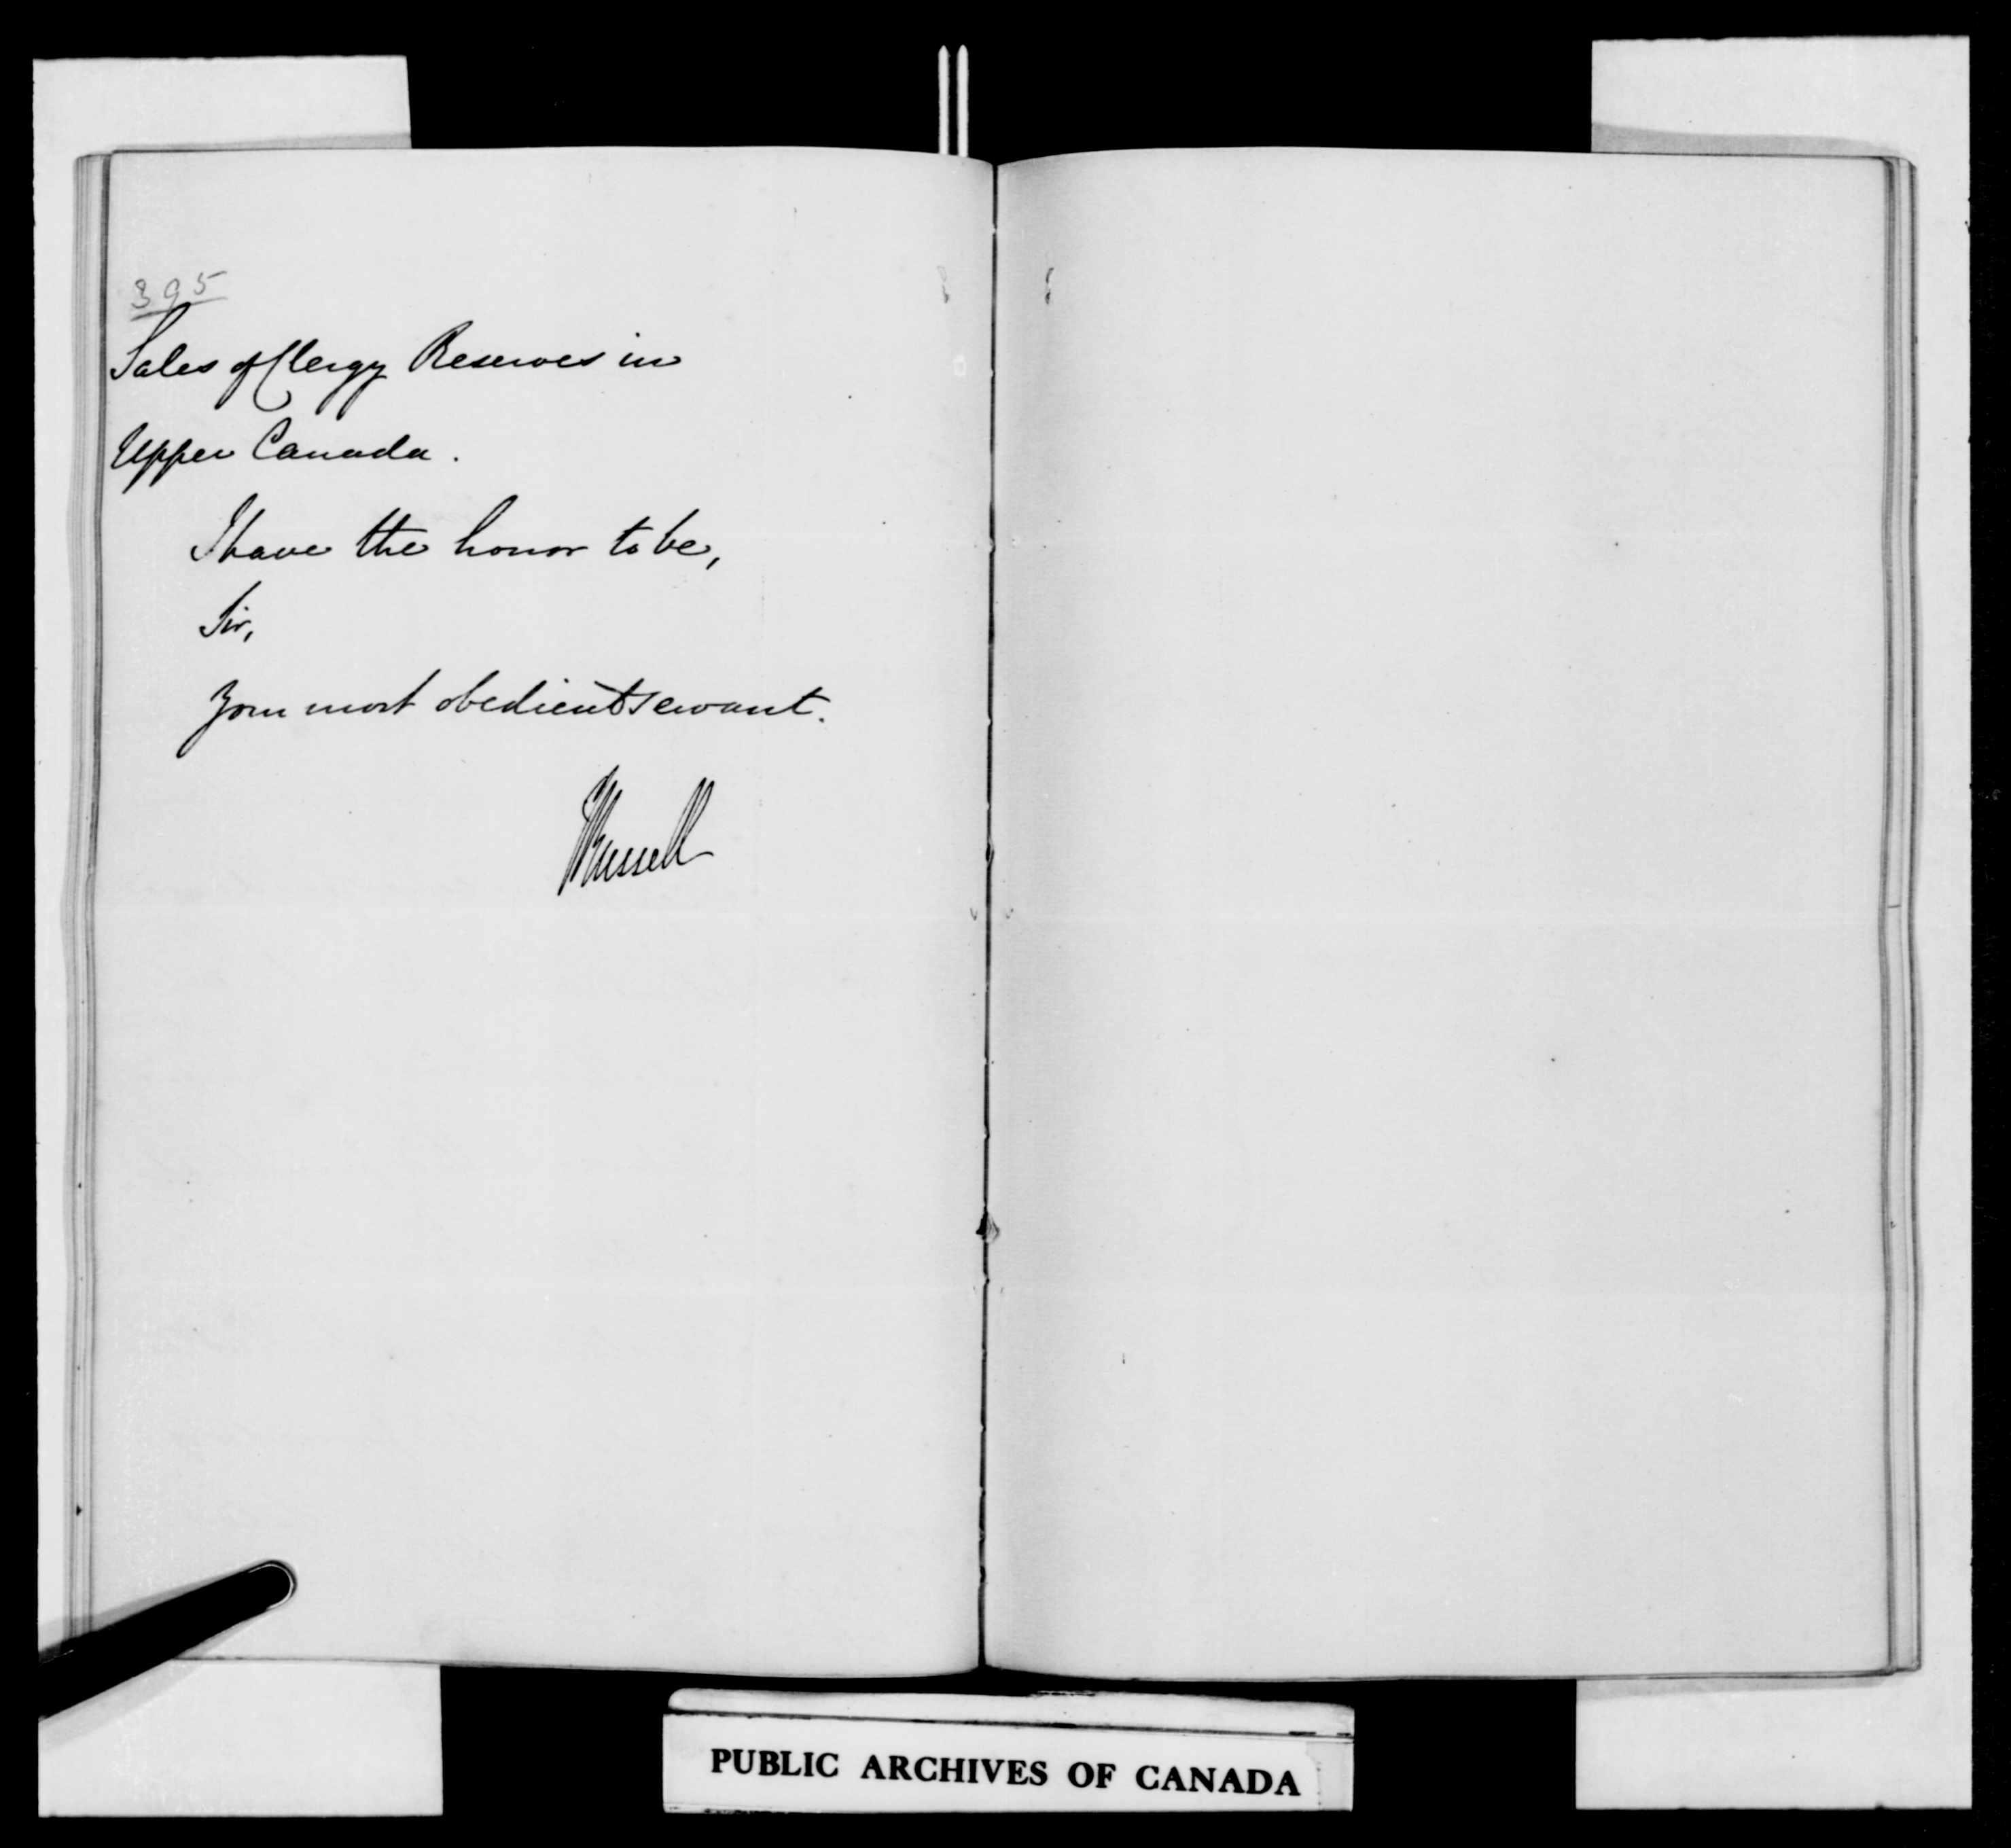 395
Sales of Clergy Reserves in
Upper Canada.
I have the honor to be,
Sir,
Your most obedient servant.
JRussell
PUBLIC ARCHIVES OF CANADA